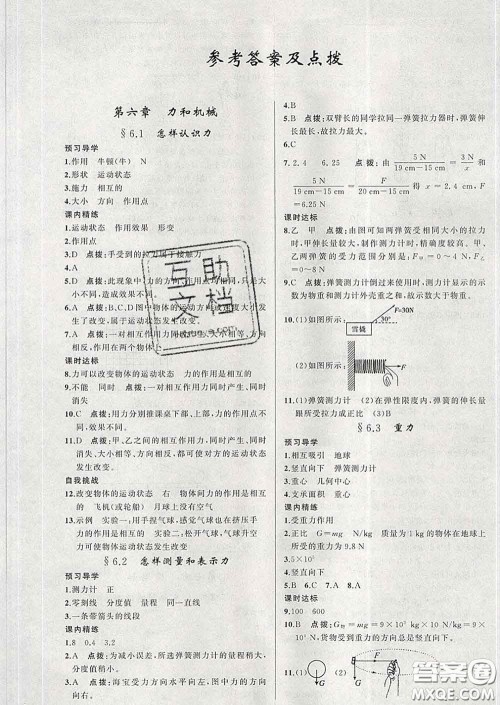 参考答案及点拨
第六章 力和机械
§6.1 怎样认识力
预习导学
1.作用 牛顿(牛) N
2.形状 运动状态
3.施力 相互的
4.大小 方向 作用点
课内精练
1.运动状态 作用效果 形变
2.作用点
3.D 点拨:手受到的拉力属于接触力
4.A
5.D 点拨:此现象中力的
大小不同,造成的力的作用效果不同。
6.A 点拨:B、C、D中物体的运动方向或速度大小
发生了改变,属于运动状态发生改变。
7.A 点拨:作用在两个物体上
课时达标
8.力可以改变物体的运动状态 力的作用是相互的
9.不能 同时 点拨:相互作用力同时产生、同时
消失。
10.C 点拨:用力分别推课桌下部、上部,力的作用
效果不同。
11.D 点拨:甲、乙之间的相互作用力,同时产生、同时
消失、大小相等、方向相反,此时两物体的运动状态
发生改变。
自我挑战
12.改变物体的运动状态 右 物体间力的作用是相互
的 飞机(或轮船) 月球上没有空气
13.示例 实验一:用手捏气球,感觉气球也在挤压手
力的作用是相互的 实验二:松开气球,气球升空
力可以改变物体运动状态
§6.2 怎样测量和表示力
预习导学
1.测力计 正
2.零刻线 分度值 量程 同一直线
3.一条带箭头的线段
课内精练
1.8 0.4 3.2
2.A 点拨:为减小误差,所选弹簧测力计的量程稍大,
分度值稍小。
3.A 点拨:海宝受力方向水平向左,图中力的方向
向右。
4.B
5.B 点拨:双臂长的同学拉同一弹簧拉力器时,弹簧伸
长最长,故拉力最大。
6.C
7.2.4 6.25 点拨:由 5 N/(19 cm−15 cm) = 3 N/x 和
5 N/(19 cm−15 cm) = F/(20 cm−15 cm) 得 x=2.4 cm,F
=6.25 N
课时达标
8.乙 甲 点拨:由图可知两弹簧受到相同大小的拉力
时,甲伸长量大,故用甲制作的测力计更精确;要使甲、
乙两弹簧的弹性不受破坏
=0~4 N。
9.C 点拨:弹簧测力计倒过来使用时,测力计显示的示
数为物重和测力计外壳重之和,故示数偏大。
10.(1)如图所示: F=30N 30° 雪橇
(2)如图所示:
11.(1)弹簧测力计 (2)在弹性限度内,弹簧的伸长量
跟所受拉力成正比 (3)B
§6.3 重力
预习导学
1.相互吸引 地球
2.竖直向下 弹簧测力计
3.重心 几何中心
4.文承面积 重心
课内精练
1.受力物体 地球
2.正比 点拨:G=mg N/kg 质量为1 kg的物体在地球
上受到的重力为9.8 N
3.重心
4.竖直向下
5.B 6.C 7.A 8.A
课时达标
9.100 600
10.C 点拨:G物=mg=9×10²
N,货物受到重力大小约为
11.(1) G (2) F G